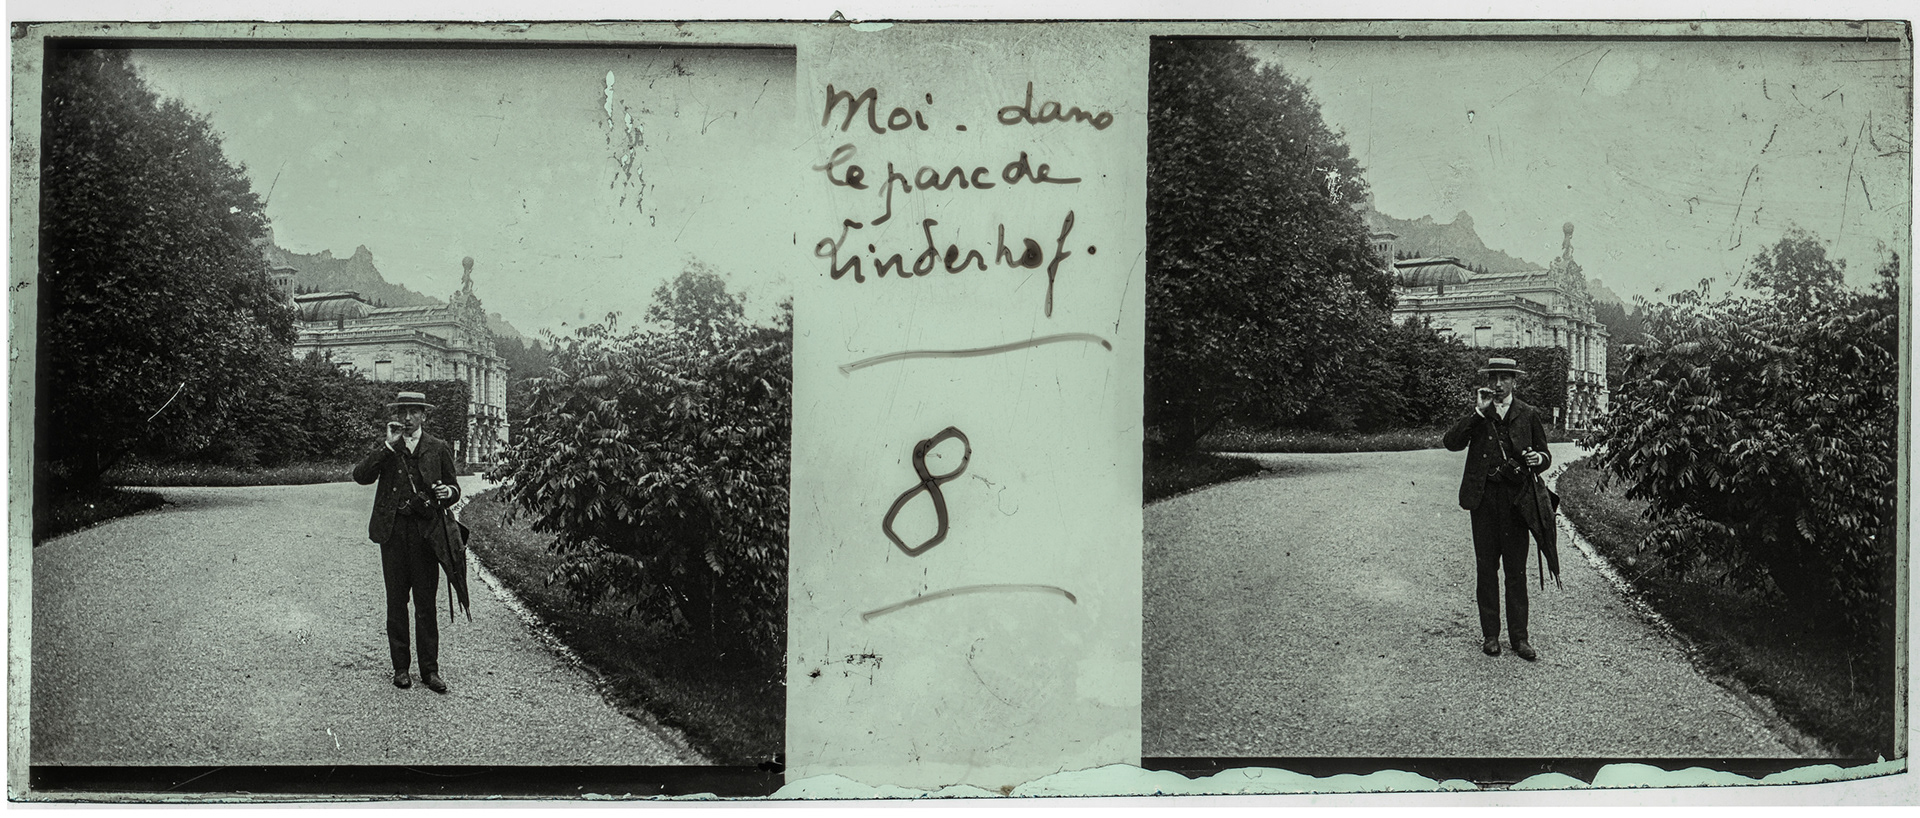 Moi. dans
le parc de
Linderhof.
8